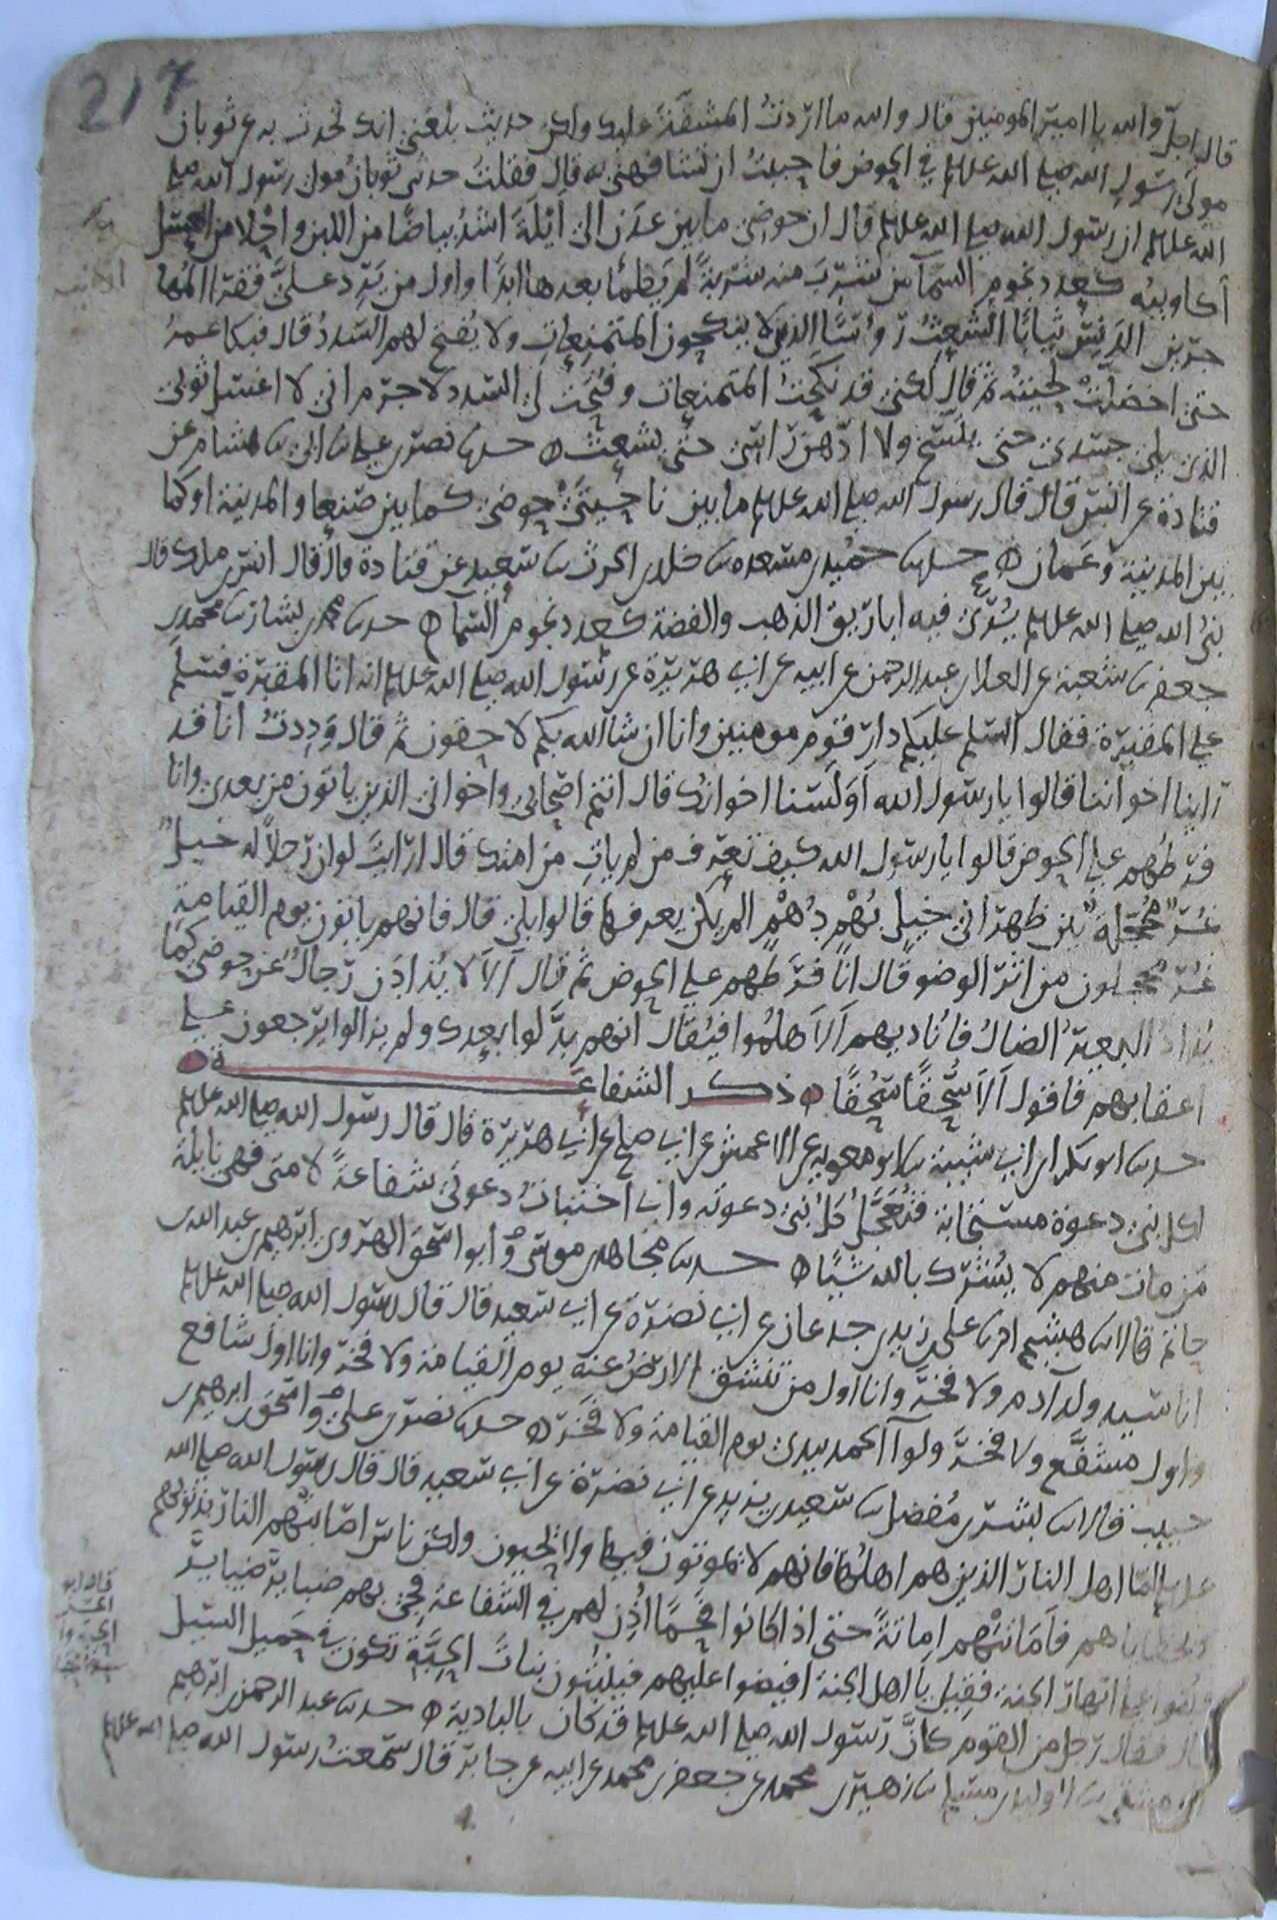 217
قال اجل والله يا امير المومنين قال والله ما اردت المشقة عليك ولكن حديث بلغني انك تحدث به عن ثوبان
مولى رسول الله صلى الله عليه وسلم في الحوض فاحببت ان تشافهني به قال فقلت حدثني ثوبان مولى رسول الله صلى
الله عليه وسلم ان رسول الله صلى الله عليه وسلم قال ان حوضي ما بين عدن الى ايلة اشد بياضا من اللبن واحلا من العسل
اكاويبه كعدد نجوم السماء من شرب منه شربة لم يظمأ بعدها ابدا واول من يرد علي فقرا المها
جرين الدنس ثيابا الشعث روسا الذين لا ينكحون المتمنعات ولا يفتح لهم السدد قال فبكا عمر
حتى اخضلت لحيته ثم قال لكني قد نكحت المتمنعات وفتحت لي السدد لا جرم اني لا اغسل ثوبي
الذي يلي جسدي حتى يتسخ ولا ادهن راسي حتى يشعث حدثنا نصر بن علي ثنا ابي ثنا هشام عن
قتادة عن انس قال قال رسول الله صلى الله عليه وسلم ما بين ناحيتي حوضي كما بين صنعا والمدينة او كما
بين المدينة وعمان حدثنا حميد بن مسعدة ثنا خلد بن الحرث ثنا سعيد عن قتادة قال قال انس بن ملك قال
نبي الله صلى الله عليه وسلم يرى فيه اباريق الذهب والفضة كعدد نجوم السما حدثنا محمد بن بشار ثنا محمد بن
جعفر ثنا شعبة عن العلا بن عبد الرحمن عن ابيه عن ابي هريرة عن رسول الله صلى الله عليه وسلم انه اتا المقبرة فسلم
على المقبرة فقال السلم عليكم دار قوم مومنين وانا ان شا الله بكم لاحقون ثم قال وددت انا قد
راينا اخواننا قالوا يا رسول الله او لسنا اخوانك قال انتم اصحابي واخواني الذين ياتون من بعدي وانا
فرطهم على الحوض قالوا يا رسول الله كيف تعرف من لم يات من امتك قال ارايت لو ان رجلا له خيل
غر محجلة بين ظهراني خيل بهم دهم الم يكن يعرفها قالوا بلى قال فانهم ياتون يوم القيامة
غر محجلون من اثر الوضو قال انا فرطهم على الحوض ثم قال الا لا يذادن رجال عن حوضي كما
يذاد البعير الضال فاناديهم الا هلموا فيقال انهم بدلوا بعدك ولم يزالوا يرجعون على
اعقابهم فاقول الا سحقا سحقا ذكر الشفاعة
حدثنا ابو بكر بن ابي شيبة ثنا ابو معوية عن الاعمش عن ابي صلح عن ابي هريرة قال قال رسول الله صلى الله عليه وسلم
لكل نبي دعوة مستجابة فتعجل كل نبي دعوته واني اختبات دعوتي شفاعة لامتي فهي نايلة
من مات منهم لا يشرك بالله شيا حدثنا مجاهد بن موسى وابو اسحق الهروي ابرهيم بن عبد الله بن
حاتم قالا ثنا هشيم انا علي بن زيد بن جدعان عن ابي نضرة عن ابي سعيد قال قال رسول الله صلى الله عليه وسلم
انا سيد ولد ادم ولا فخر وانا اول من تنشق الارض عنه يوم القيامة ولا فخر وانا اول شافع
واول مشفع ولا فخر ولوا الحمد بيدي يوم القيامة ولا فخر حدثنا نصر بن علي واسحق بن ابرهيم بن
حبيب قالا ثنا بشر بن مفضل ثنا سعيد بن يزيد عن ابي نضرة عن ابي سعيد قال قال رسول الله صلى الله
عليه وسلم اما اهل النار الذين هم اهلها فانهم لا يموتون فيها ولا يحيون ولكن ناس اصابتهم النار بذنوبهم
وبخطاياهم فاماتتهم اماتة حتى اذا كانوا فحما اذن لهم في الشفاعة فجي بهم ضباير ضباير
وبثوا على انهار الجنة فقيل يا اهل الجنة افيضوا عليهم فينبتون نبات الحبة تكون في حميل السيل
قال فقال رجل من القوم كان رسول الله صلى الله عليه وسلم قد كان بالبادية حدثنا عبد الرحمن بن ابرهيم
الدمشقي ثنا الوليد بن مسلم ثنا زهير بن محمد عن جعفر بن محمد عن ابيه عن جابر قال سمعت رسول الله صلى الله عليه وسلم